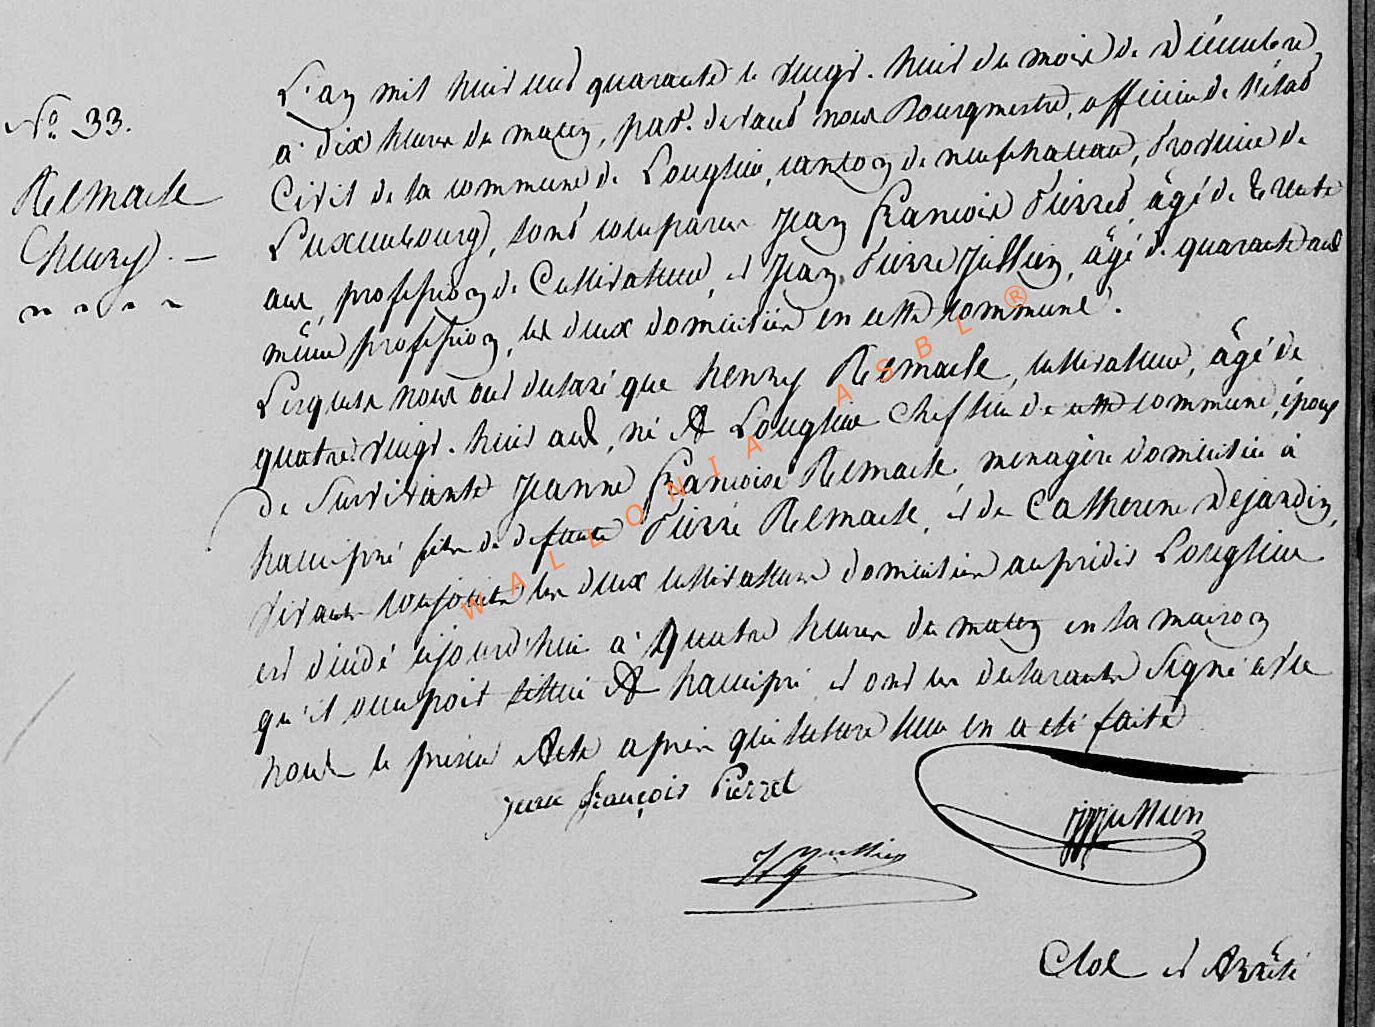 N° 33.
Remacle
henry. —
L'an mil huit cent quarante le vingt-huit du mois de Décembre,
à dix heures du matin, par devant nous Bourgmestre, officier de l'état
Civil de la commune de Longlier, canton de neufchateau, Province de
Luxembourg, sont comparus Jean françois Pierret, âgé de trente
ans, profession de Cultivateur, et Jean Pierre Jullien, âgé de quarante ans
même profession, les deux domiciliés en cette commune.
Lesquels nous ont declaré que henry Remacle, cultivateur, âgé de
quatre vingt-huit ans, né A Longlier Chef lieu de cette commune, époux
de Survivante Jeanne françoise Remacle, menagère domiciliée à
hamipré fils de defunts Pierre Remacle, et de Catherine Dejardin,
vivants conjoints les deux cultivateurs domiciliés au prédit Longlier
est décédé ajourd'hui à quatre heures du matin en la maison
qu'il occupoit située A hamipré, et ont les declarants Signé avec
nous le présent Acte après que lecture leur en a été faite
Jean françois Pierret
JPJullien
Jullien
Clos et Arrêté
WALLONIA ASBL ®